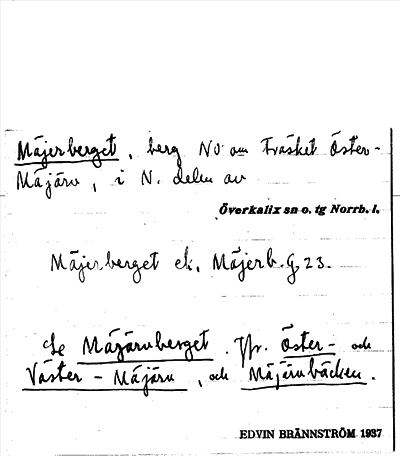 Mäjerberget, berg NO om träsket Öster-
Mäjärv, i N. delen av
Överkalix sn o. tg Norrb. l.
Mäjerberget ek. Mäjerb. G 23.
Se Mäjärvberget. Jfr. Öster- och
Väster-Mäjärv, och Mäjärvbäcken.
EDVIN BRÄNNSTRÖM 1937